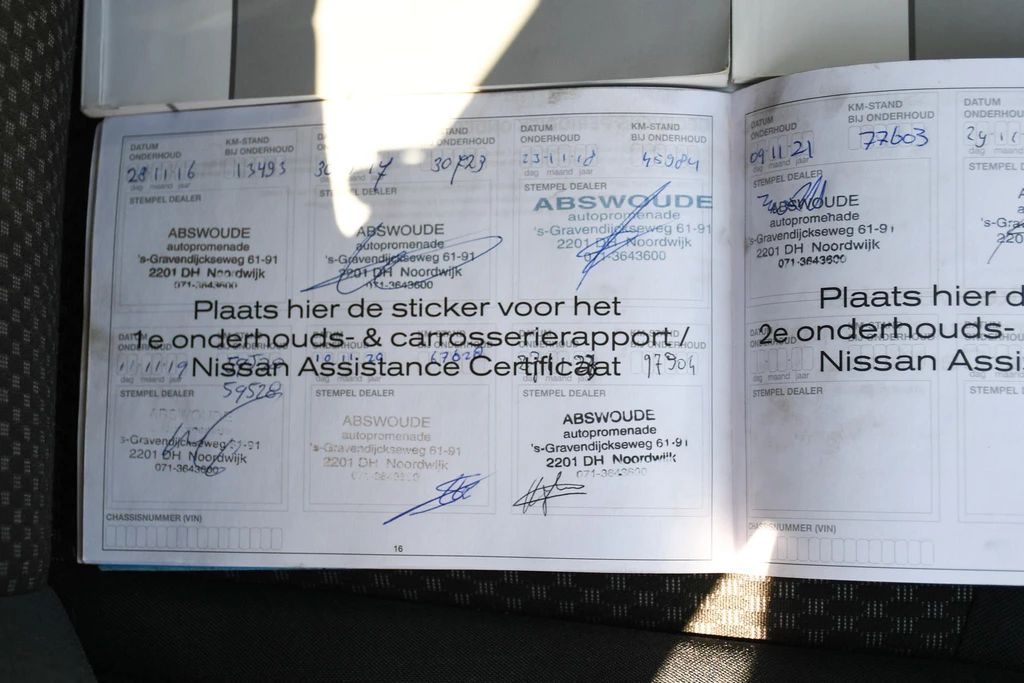 DATUM ONDERHOUD KM-STAND BIJ ONDERHOUD
28 11 16 13493
dag maand jaar
STEMPEL DEALER
ABSWOUDE
autopromenade
's-Gravendijckseweg 61-91
2201 DH Noordwijk
071-3643600
KM-STAND BIJ ONDERHOUD
17 30723
DEALER
ABSWOUDE
autopromenade
's-Gravendijckseweg 61-91
2201 DH Noordwijk
071-3643600
DATUM ONDERHOUD KM-STAND BIJ ONDERHOUD
23 11 18 45984
dag maand jaar
STEMPEL DEALER
ABSWOUDE
autopromenade
's-Gravendijckseweg 61-91
2201 DH Noordwijk
071-3643600
Plaats hier de sticker voor het
1e onderhouds- & carrosserierapport /
Nissan Assistance Certificaat
11 11 19
59528
dag maand jaar
STEMPEL DEALER
ABSWOUDE
's-Gravendijckseweg 61-91
2201 DH Noordwijk
071-3643600
67628
dag maand jaar
STEMPEL DEALER
ABSWOUDE
autopromenade
's-Gravendijckseweg 61-91
2201 DH Noordwijk
97904
dag maand jaar
STEMPEL DEALER
ABSWOUDE
autopromenade
's-Gravendijckseweg 61-91
2201 DH Noordwijk
071-3643600
CHASSISNUMMER (VIN)
16
DATUM ONDERHOUD KM-STAND BIJ ONDERHOUD
09 11 21 77603
dag maand jaar
STEMPEL DEALER
ABSWOUDE
autopromenade
's-Gravendijckseweg 61-91
2201 DH Noordwijk
071-3643600
DATUM ONDERHOUD
dag
STEMPEL
Plaats hier
2e onderhouds-
Nissan
dag maand jaar
STEMPEL DEALER
CHASSISNUMMER (VIN)